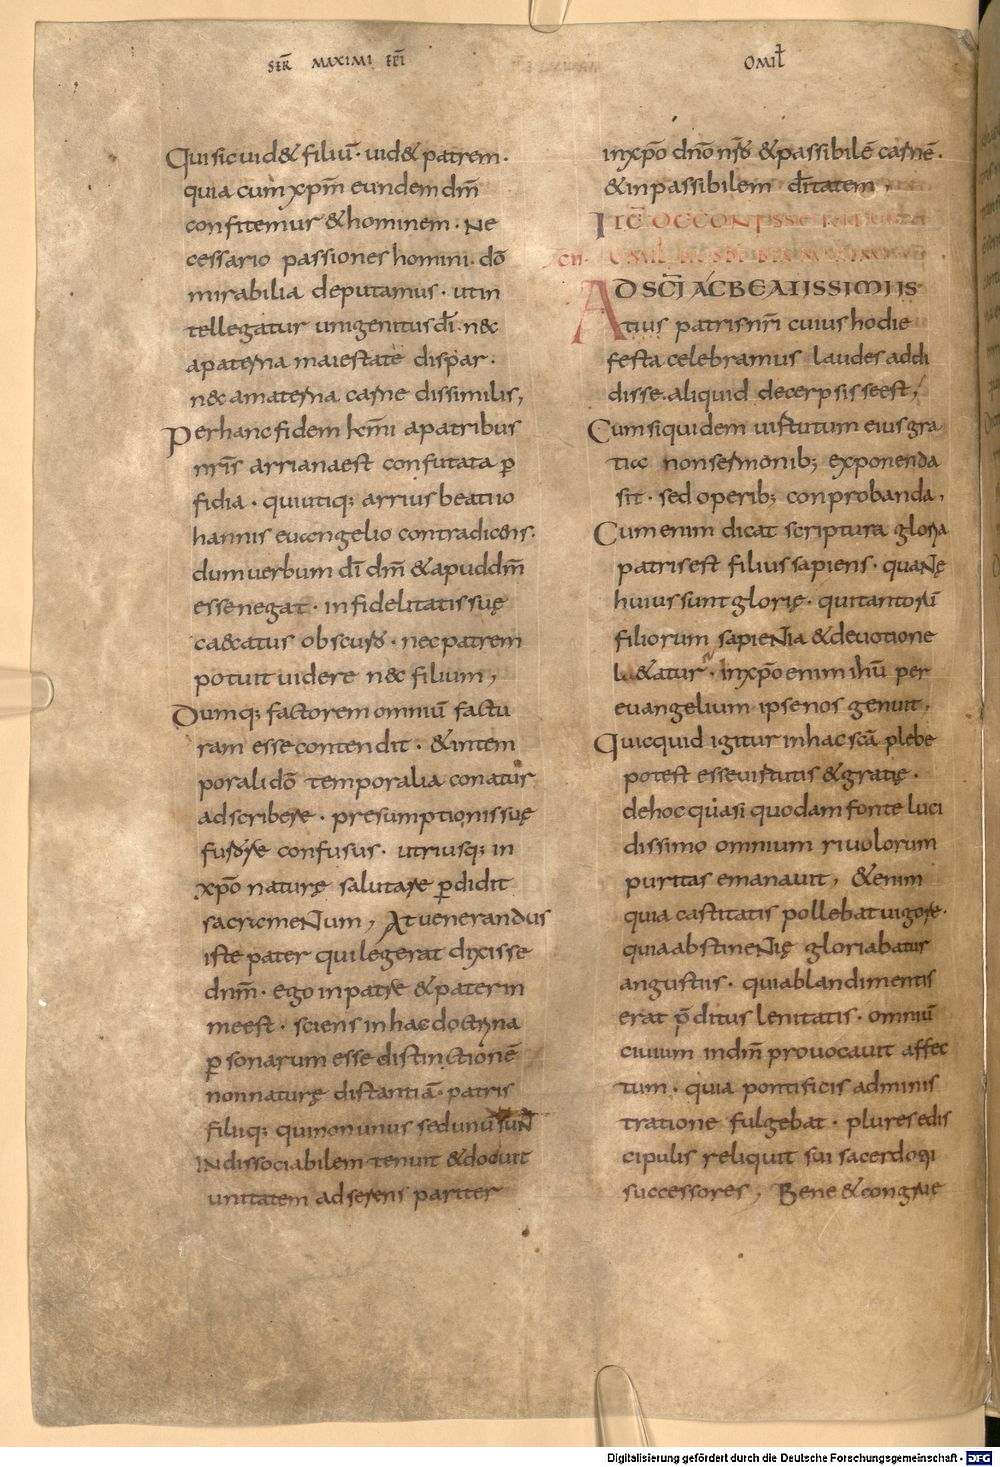 SER̄ MAXIMI EP̄I
OMIL̄
Qui sic uid& filiū· uid& patrem·
quia cum xp̄m eundem dm̄
confitemur & hominem· Ne
cessario passiones homini· dō
mirabilia deputamus· utin
tellegatur unigenitus dī· nec
a paterna maiestate dispar·
nec amaterna carne dissimilis,
Per hanc fidem kc̄mi a patribus
nr̄is arriana est confutata ꝑ
fidia· qui utiq; arrius beato io
hanni euangelio contradicens·
dum uerbum dī dm̄ & apud dm̄
esse negat· infidelitatis suę
caecatus obscuro· nec patrem
potuit uidere nec filium,
Dumq; factorem omniū factu
ram esse contendit· & intem
porali dō temporalia conatur
adscribere· presumptionis suę
furore confusus· utriusq; in
xp̄o naturę salutare ꝑdidit
sacramentum, At uenerandus
iste pater qui legerat dixisse
dnm̄· ego in patre & pater in
me est· sciens in hac doctrina
ꝑsonarum esse distinctionē
non naturę distantiā· patris
filiiq; qui non unus sed unū sun̄
Indissociabilem tenuit & docuit
unitatem adserens pariter
in xp̄o dn̄o nr̄o & passibilē carnē·
& inpassibilem dēitatem,
AD SC̄I AC BEATISSIMI IS
tius patris nr̄i cuius hodie
festa celebramus laudes addi
disse aliquid decerpsisse est,
Cum siquidem uirtutum eius gra
tia non sermonib; exponenda
sit· sed operib; conprobanda,
Cum enim dicat scriptura gloria
patris est filius sapiens· quantę
huius sunt glorię· qui tantorū
filiorum sapientia & deuotione
laetatur· In xp̄o enim ihū per
euangelium ipse nos genuit,
Quicquid igitur in hac scā plebe
potest esse uirtutis & gratię·
de hoc quasi quodam fonte luci
dissimo omnium riuolorum
puritas emanauit, & enim
quia castitatis pollebat uigore·
quia abstinentię gloriabatur
angustus· quia blandimentis
erat p̄ditus lenitatis· omniū
ciuium in dm̄ prouocauit affec
tum· quia pontificis adminis
tratione fulgebat· plures e dis
cipulis reliquit sui sacerdotii
successores, Bene & congruę
Digitalisierung gefördert durch die Deutsche Forschungsgemeinschaft - DFG